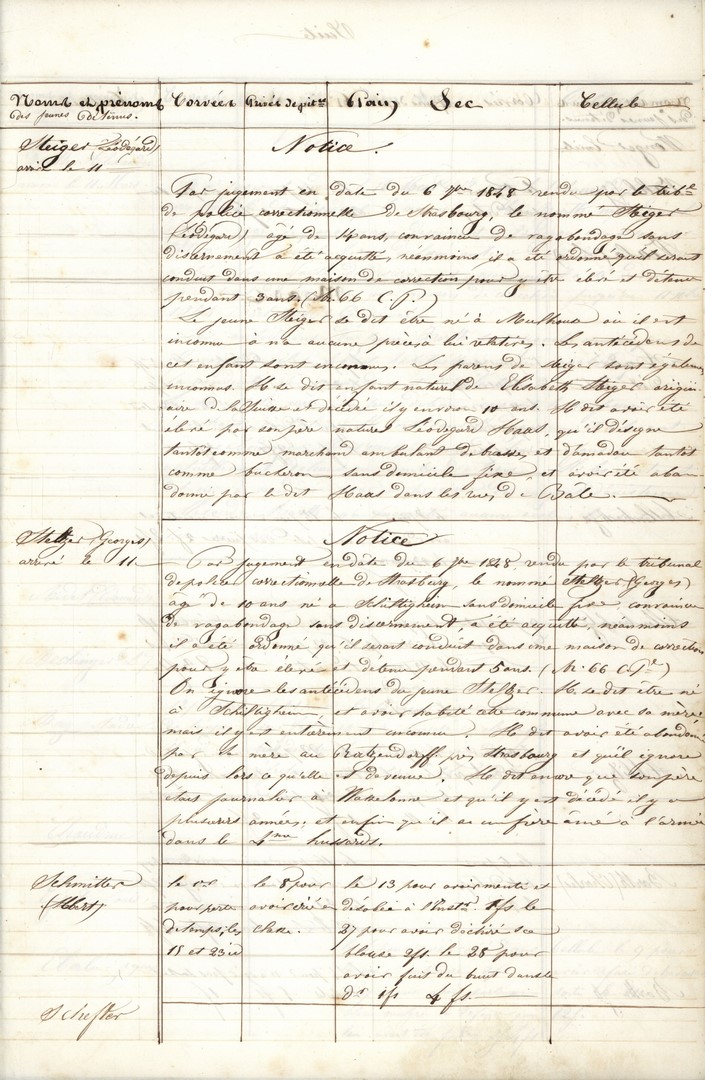 Suite
Noms et prénoms Corvées Privés de pitce Pain Sec Cellule
des jeunes détenus.
Steiger (Léodegard) Notice.
arrivé le 11
Par jugement en date du 6 7bre 1848 rendu par le tribal
de police correctionnelle de Strasbourg, le nommé Steiger
(Léodegard) âgé de 14 ans, convaincu de vagabondage sans
discernement a été acquitté, néanmoins il a été ordonné qu'il serait
conduit dans une maison de correction pour y être élevé et détenu
pendant 3 ans. (Art. 66 C.P.)
Le jeune Steiger se dit être né à Mulhouse où il est
inconnu & n'a aucune pièces à lui relatives. Les antécédens de
cet enfant sont inconnus. Les parens de Steiger sont également
inconnus. Il se dit enfant naturel de Elisabeth Steiger origin-
aire de la Suisse et décédé il y environ 10 ans. Il dit avoir été
élevé par son père naturel Léodegard Haas, qu'il désigne
tantôt comme marchand ambulant de et d'amadou tantôt
comme bûcheron sans domicile fixe et avoir été aban
donné par le dit Haas dans les rues de Bâle.
Steltzer (Georges) Notice
arrivé le 11
Par jugement en date du 6 7bre 1848, rendu par le tribunal
de police correctionnelle de Strasburg, le nommé Steltzer (Georges)
âgé de 10 ans né à Schiltigheim sans domicile fixe, convaincu
de vagabondage sans discernement, a été acquitté, néanmoins
il a été ordonné qu'il serait conduit dans une maison de correction
pour y être élevé et détenu pendant 5 ans. (Art. 66 C.Pl)
On ignore les antécédens du jeune Steltzer. Il se dit être né
à Schiltigheim, et avoir habité cette commune avec sa mère
mais il y est entièrement inconnu. Il dit avoir été abandonné
par sa mère au Ratzendorff près Strasbourg et qu'il ignore
depuis lors ce qu'elle est devenue. Il dit encore que son père
était journalier à Wasselonne et qu'il y est décédé il y a
plusieurs années, et enfin qu'il a un frère ainé à l'armée
dans le 4me hussards.
Schmitter le le 8 pour le 13 pour avoir menti et
(Albert) pour perte avoir crié en désobéi à l'instr. 1 fs le
de temps, les classe. 27 pour avoir déchiré sa
15 et 23 blouse 2 fs. le 28 pour
avoir fait du bruit dans le
dr 1 fs 4 fs.
Scheffter